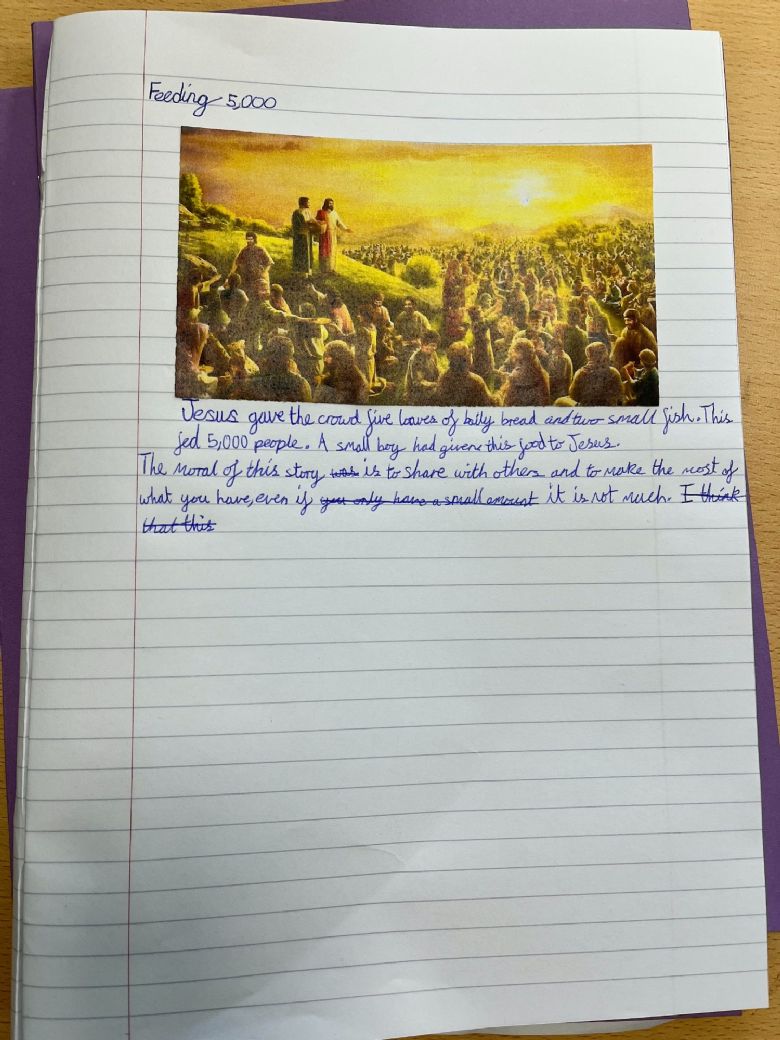 Feeding 5,000
Jesus gave the crowd five loaves of baily bread and two small fish. This
fed 5,000 people. A small boy had given this food to Jesus.
The moral of this story was is to share with others and to make the most of
what you have, even if you only have a small amount it is not much. I think
that this